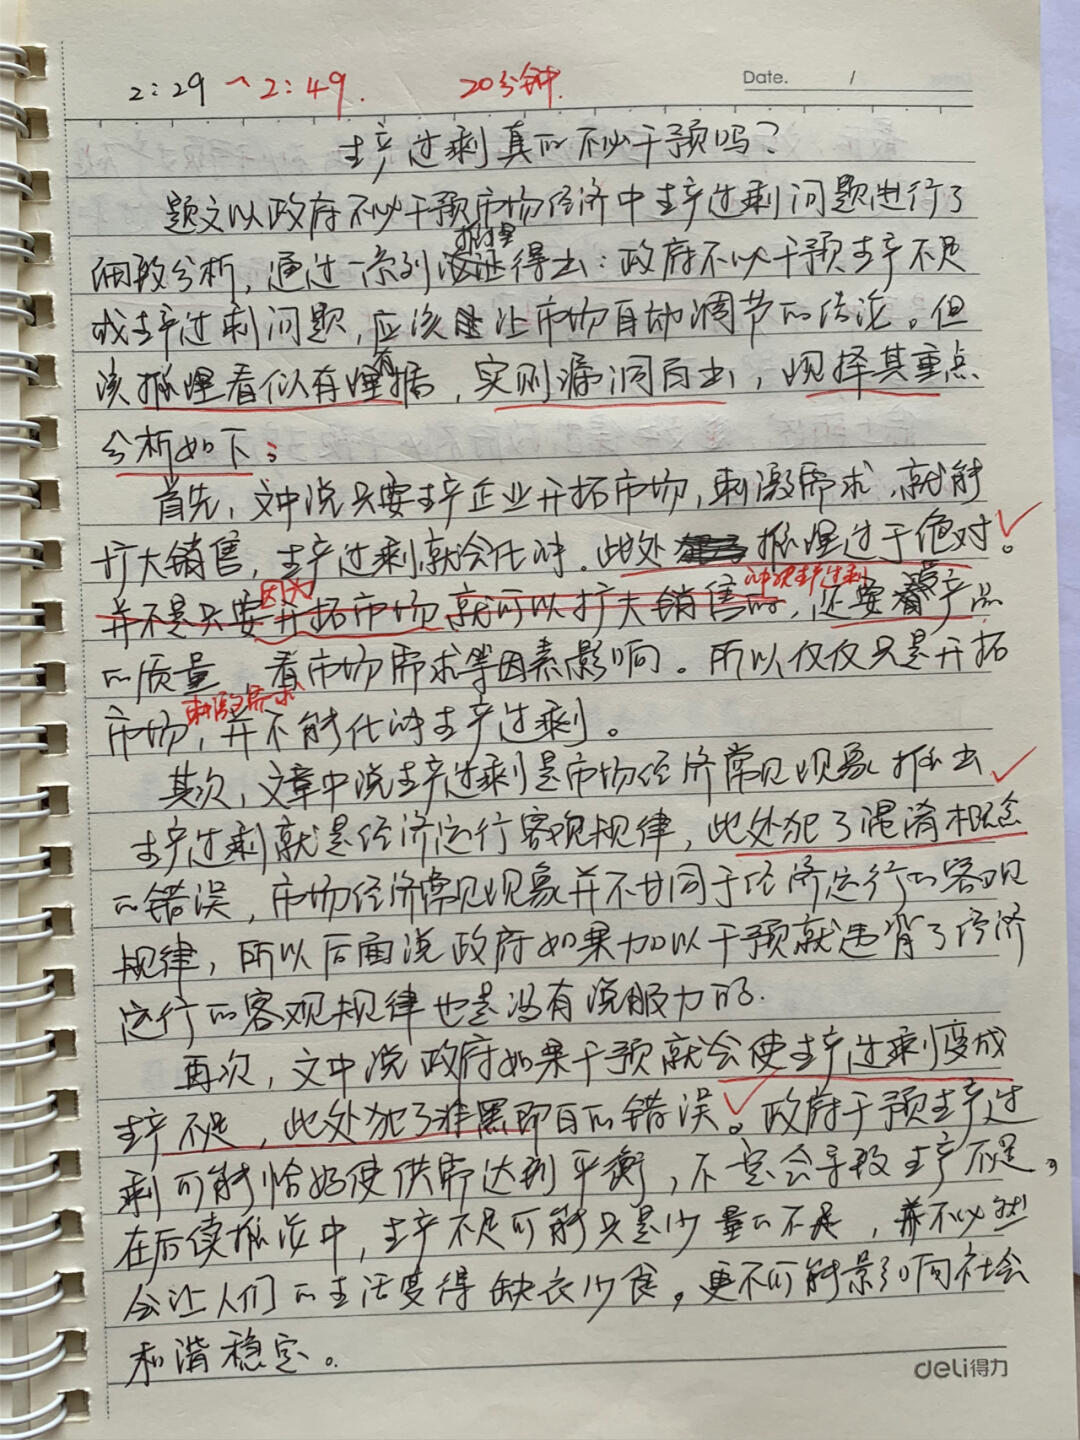 2:29 ~2:49. 20分钟. Date. /
生产过剩真的不必干预吗?
题文以政府不必干预市场经济中生产过剩问题进行了
细致分析,通过一系列推理得出:政府不必干预生产不足
或生产过剩问题,应该让市场自动调节的结论。但
该推理看似有理有据,实则漏洞百出,现择其重点
分析如下:
首先,文中说只要生产企业开拓市场,刺激需求,就能
扩大销售,生产过剩就会化解.此处推理过于绝对。
因为 解决生产过剩
并不是只要开拓市场就可以扩大销售的,还要看产品
的质量,看市场需求等因素影响。所以仅仅只是开拓
刺激需求
市场,并不能化解生产过剩。
其次,文章中说生产过剩是市场经济常见现象推出
生产过剩就是经济运行客观规律,此处犯了混淆概念
的错误,市场经济常见现象并不等同于经济运行的客观
规律,所以后面说政府如果加以干预就违背了经济
运行的客观规律也是没有说服力的.
再次,文中说政府如果干预就会使生产过剩变成
生产不足,此处犯了非黑即白的错误。政府干预生产过
剩可能恰好使供需达到平衡,不一定会导致生产不足,
在后续推论中,生产不足可能只是少量的不足,并不必然
会让人们的生活变得缺衣少食,更不可能影响社会
和谐稳定。
deli得力